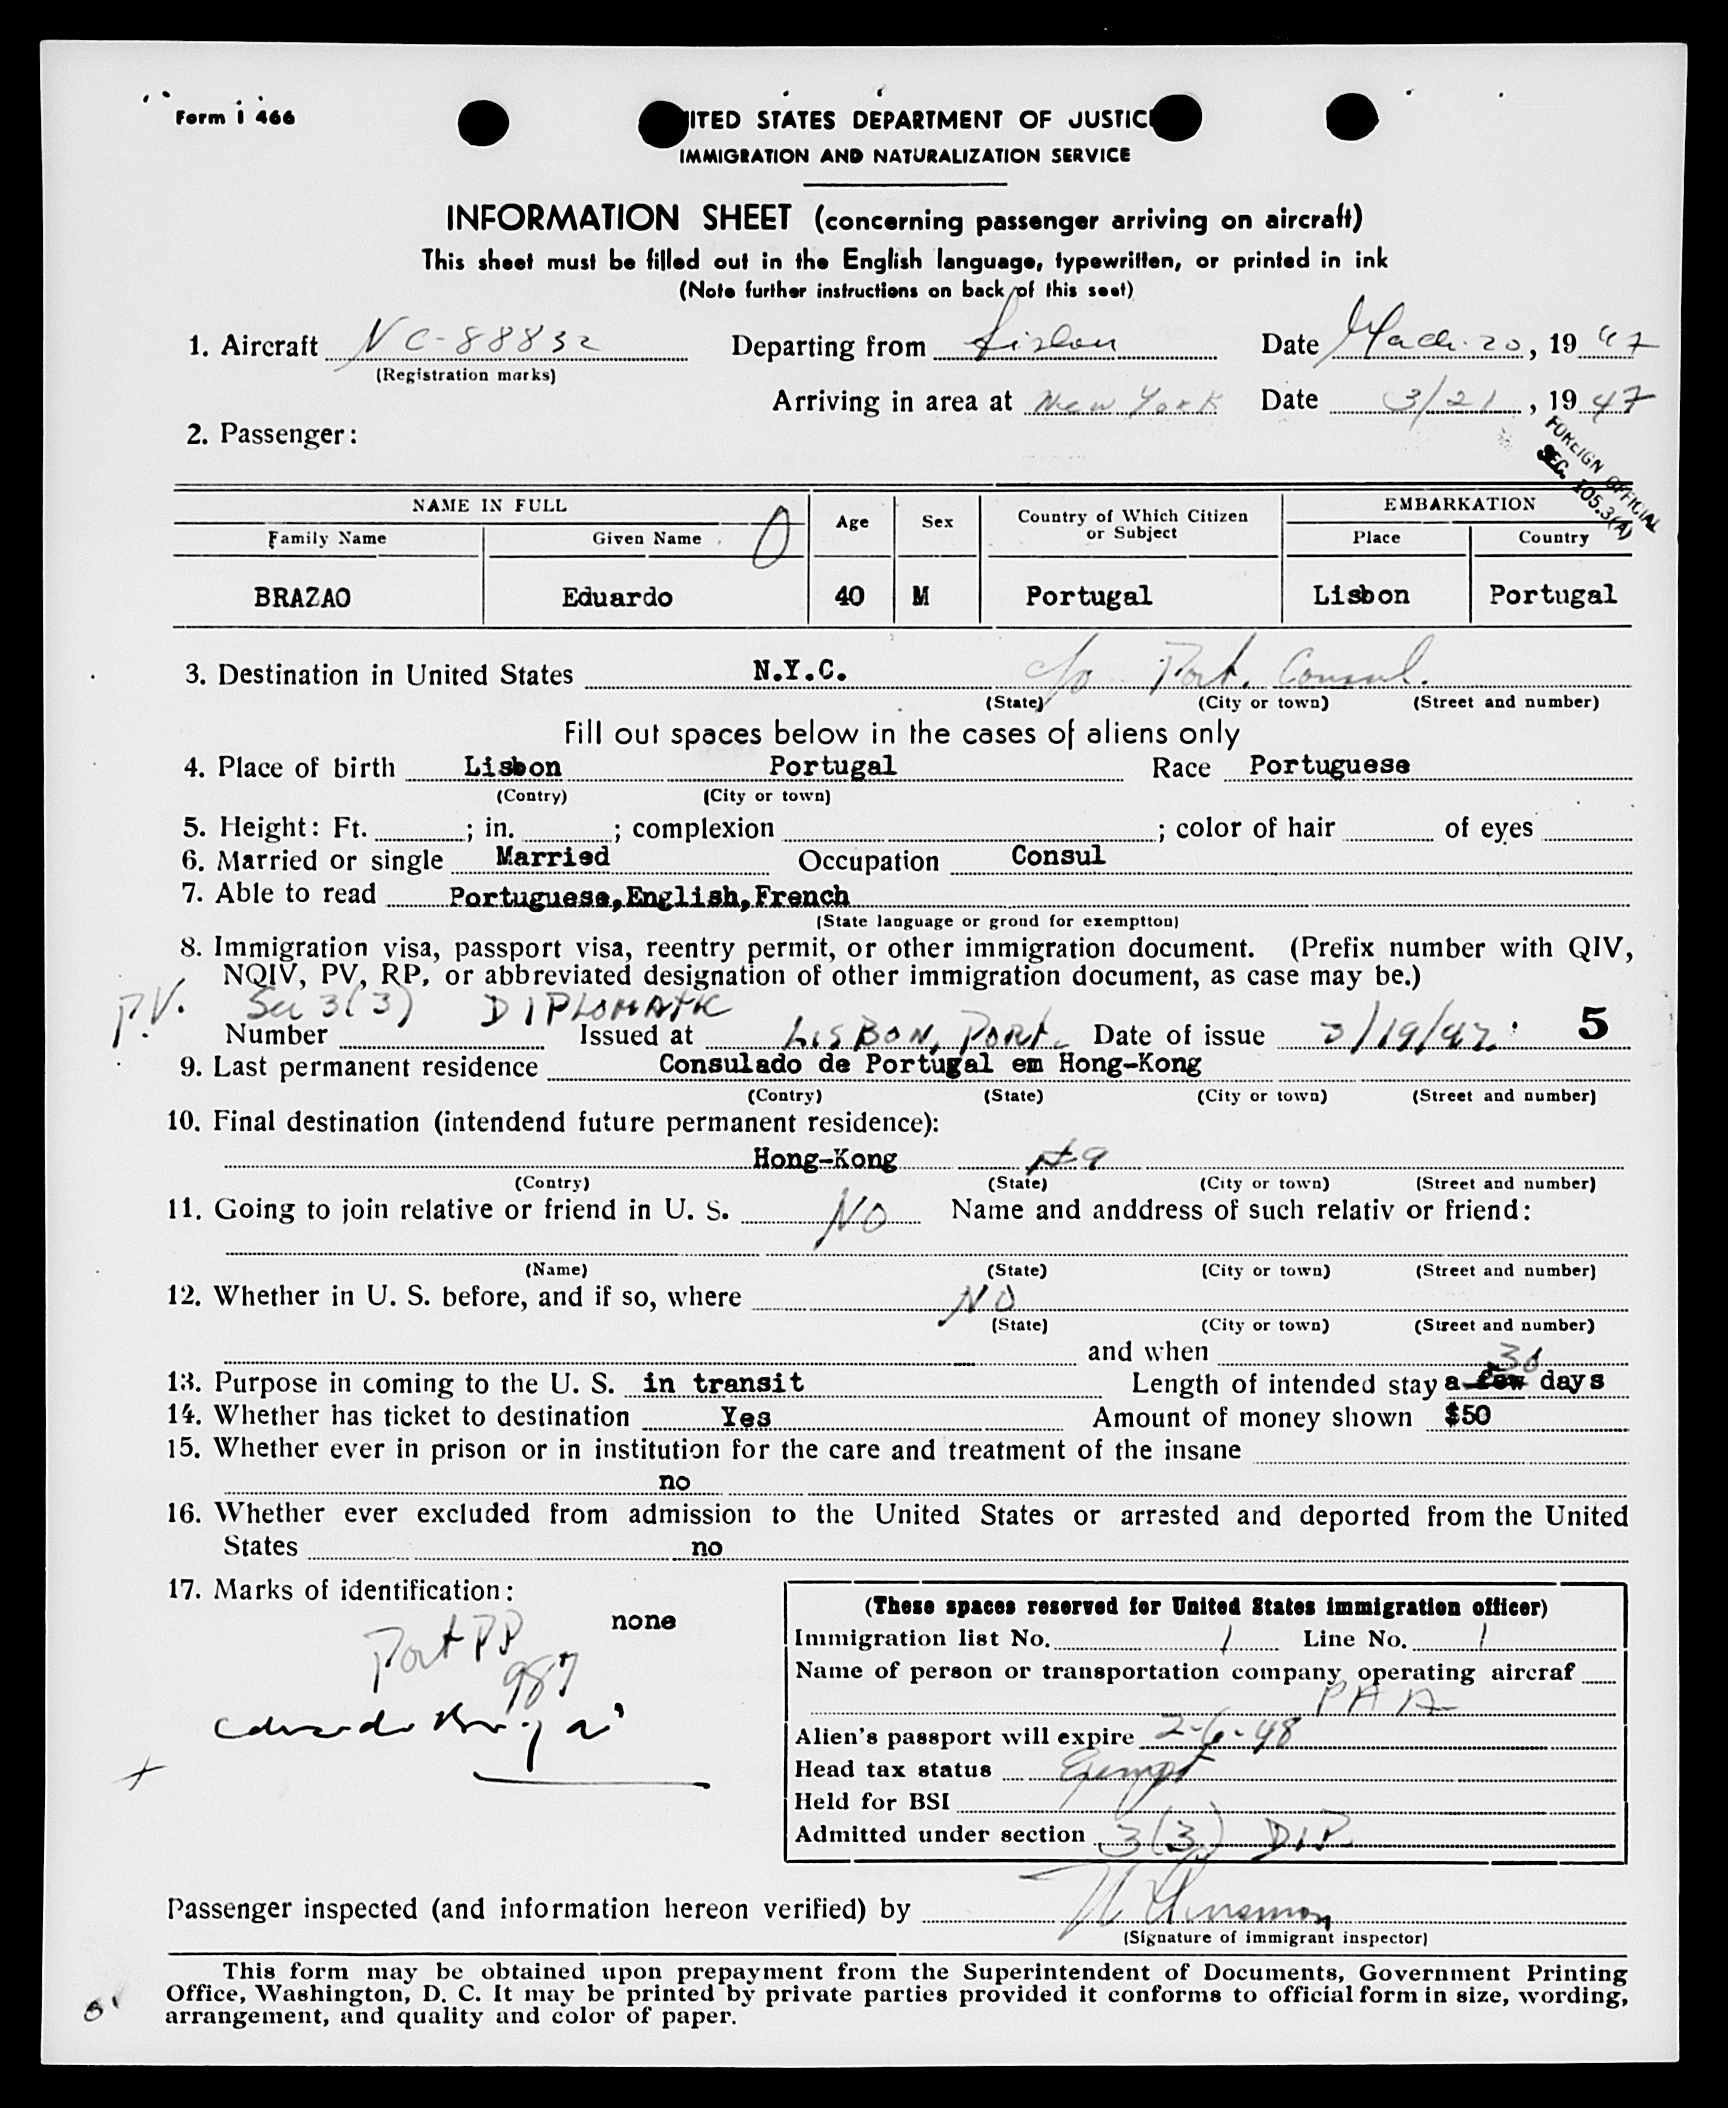 Form I 466
ITED STATES DEPARTMENT OF JUSTIC
IMMIGRATION AND NATURALIZATION SERVICE
INFORMATION SHEET (concerning passenger arriving on aircraft)
This sheet must be filled out in the English language, typewritten, or printed in ink
(Note further instructions on back of this seet)
1. Aircraft NC-88832 Departing from Lisbon Date March 20, 19 47
(Registration marks)
Arriving in area at New York Date 3/21, 19 47
2. Passenger:
FOREIGN OFFICIAL
SEC. 105.3(A)
NAME IN FULL Age Sex Country of Which Citizen or Subject EMBARKATION
Family Name Given Name Place Country
BRAZAO Eduardo 40 M Portugal Lisbon Portugal
3. Destination in United States N.Y.C. c/o Port. Consul.
(State) (City or town) (Street and number)
Fill out spaces below in the cases of aliens only
4. Place of birth Lisbon Portugal Race Portuguese
(Contry) (City or town)
5. Height: Ft. ; in. ; complexion ; color of hair of eyes
6. Married or single Married Occupation Consul
7. Able to read Portuguese,English,French
(State language or grond for exemptton)
8. Immigration visa, passport visa, reentry permit, or other immigration document. (Prefix number with QIV,
NQIV, PV, RP, or abbreviated designation of other immigration document, as case may be.)
PV. Sec 3(3) DIPLOMATIC
Number Issued at LISBON, PORT. Date of issue 3/19/47 5
9. Last permanent residence Consulado de Portugal em Hong-Kong
(Contry) (State) (City or town) (Street and number)
10. Final destination (intendend future permanent residence):
Hong-Kong
(Contry) (State) (City or town) (Street and number)
11. Going to join relative or friend in U. S. NO Name and anddress of such relativ or friend:
(Name) (State) (City or town) (Street and number)
12. Whether in U. S. before, and if so, where NO
(State) (City or town) (Street and number)
and when
13. Purpose in coming to the U. S. in transit Length of intended stay a few 30 days
14. Whether has ticket to destination Yes Amount of money shown $50
15. Whether ever in prison or in institution for the care and treatment of the insane
no
16. Whether ever excluded from admission to the United States or arrested and deported from the United
States no
17. Marks of identification:
none
Port PP
987
(These spaces reserved for United States immigration officer)
Immigration list No. 1 Line No. 1
Name of person or transportation company operating aircraf
PAA
Alien's passport will expire 2-6-48
Head tax status Exempt
Held for BSI
Admitted under section 3(3) DIP
Passenger inspected (and information hereon verified) by
(Signature of immigrant inspector)
This form may be obtained upon prepayment from the Superintendent of Documents, Government Printing
Office, Washington, D. C. It may be printed by private parties provided it conforms to official form in size, wording,
arrangement, and quality and color of paper.